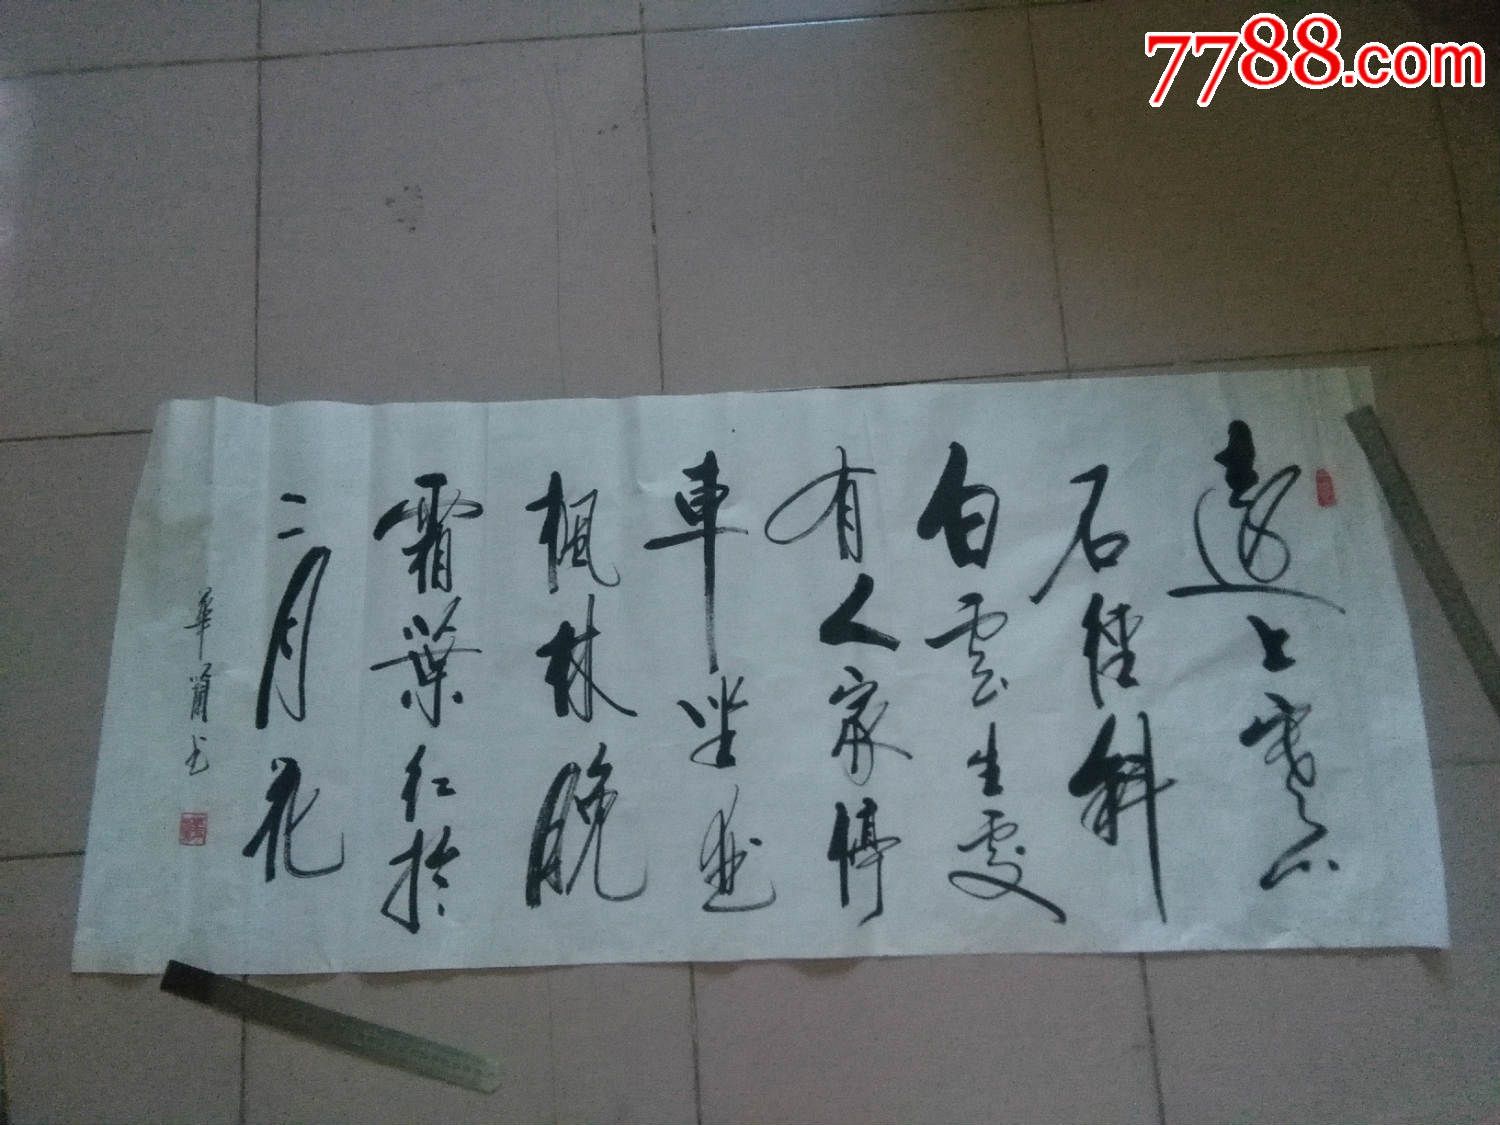 7788.com
遠上寒山
石徑斜
白雲生處
有人家停
車坐愛
楓林晚
霜葉紅於
二月花
華书